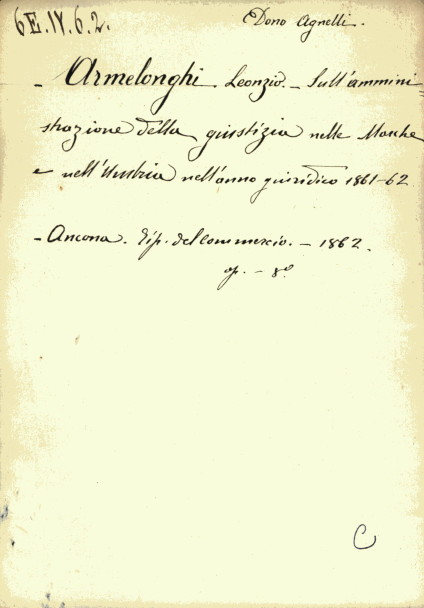 6E.IV.6.2.
Dono Agnelli.
- Armelonghi Leonzio. - Sull'ammini
strazione della giustizia nelle Marche
e nell'Umbria nell'anno giuridico 1861-62
- Ancona. Tip. del commercio. - 1862.
op. - 8º
C